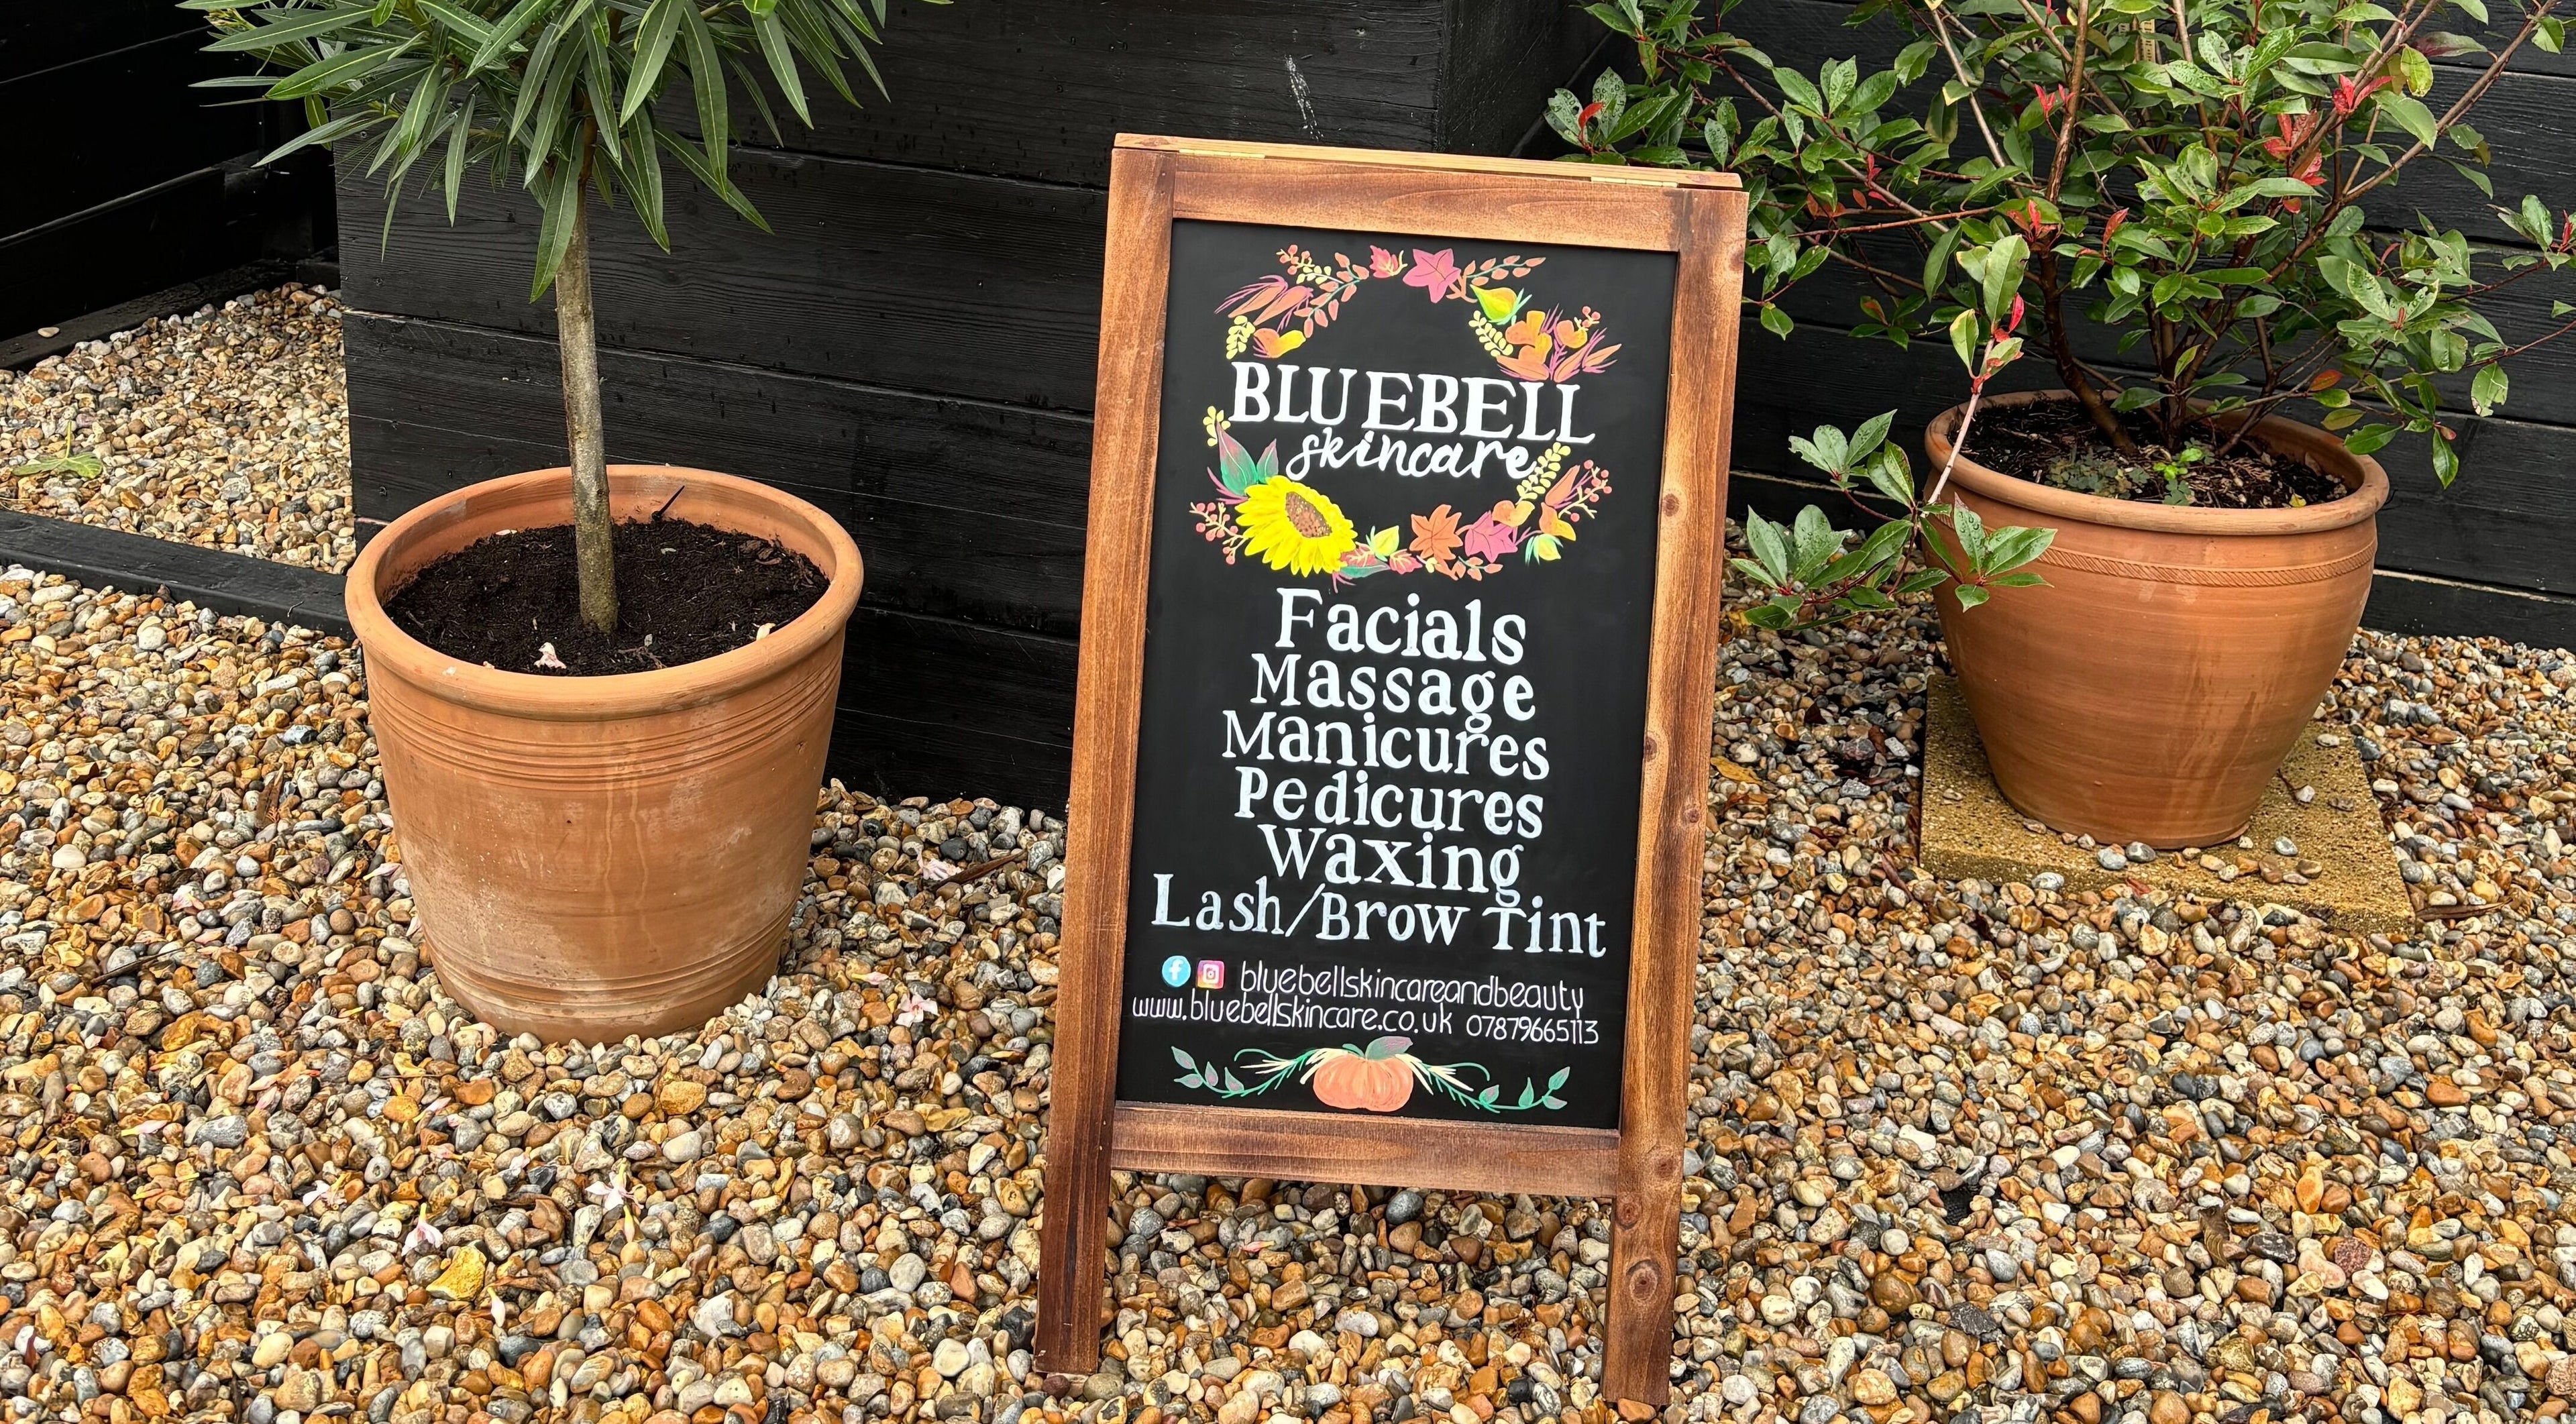 BLUEBELL
skincare
Facials
Massage
Manicures
Pedicures
Waxing
Lash/Brow Tint
bluebellskincareandbeauty
www.bluebellskincare.co.uk 07879665113